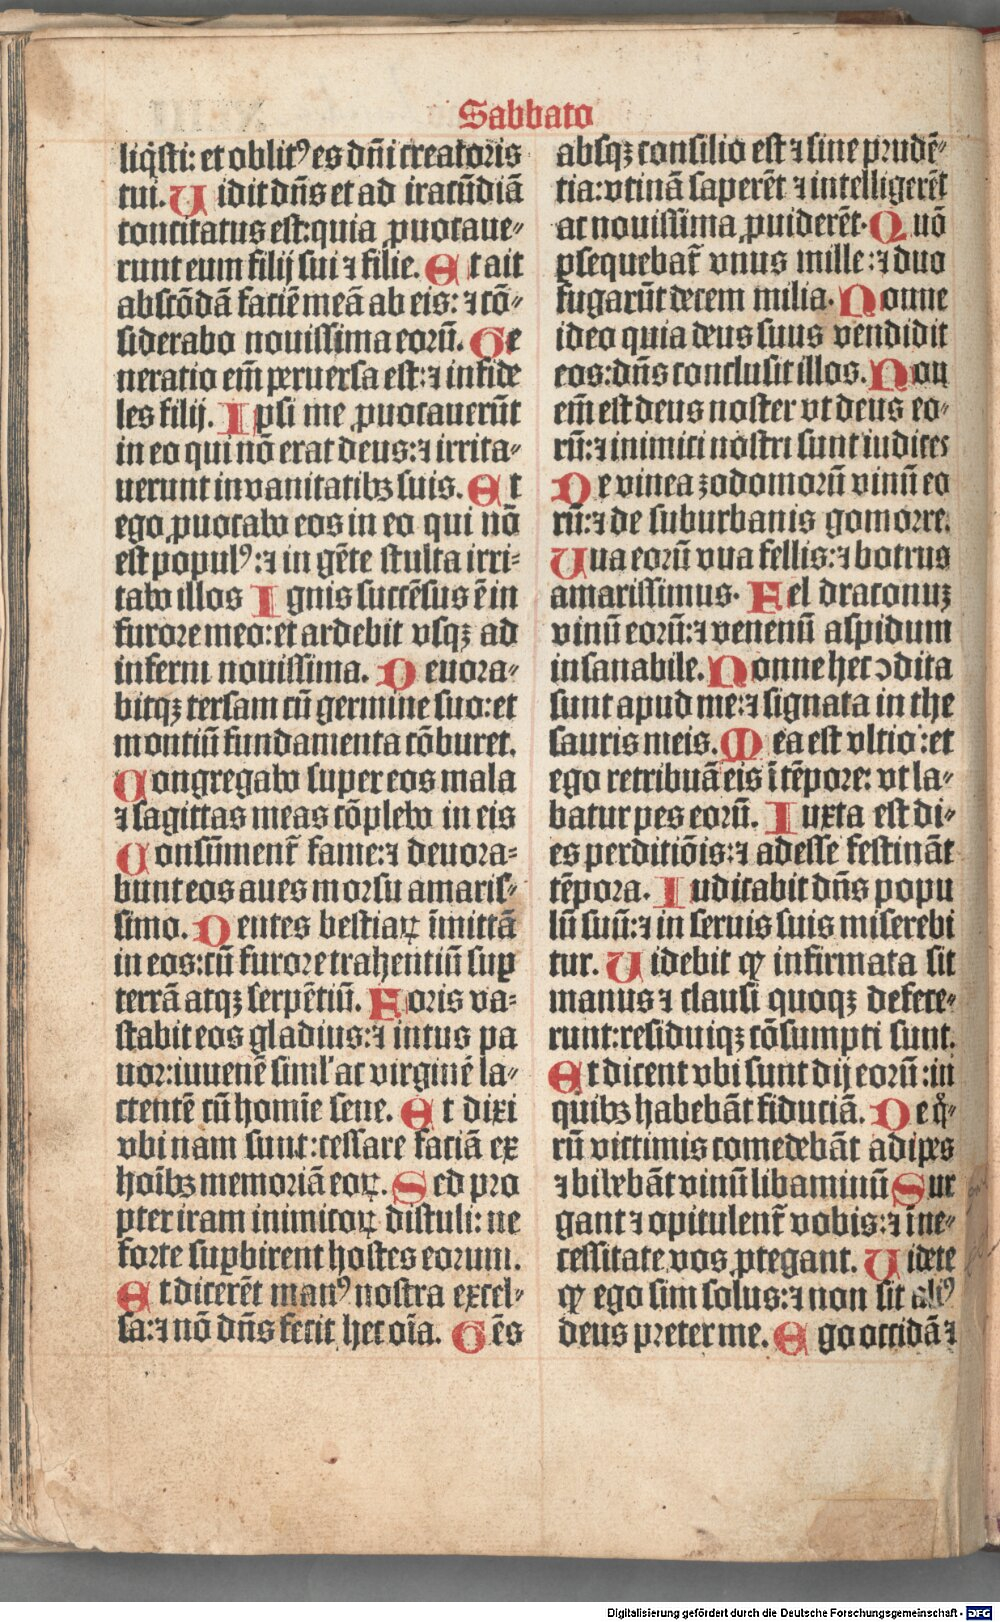 Sabbato
liq̇sti: et oblitꝰ es dn̄i creatoris
tui. Uidit dn̄s et ad iracūdiā
concitatus est: quia ꝓuocaue⸗
runt eum filij sui ⁊ filie. Et ait
abscōdā faciē meā ab eis: ⁊ cō⸗
siderabo nouissima eorū. Ge
neratio em̄ peruersa est: ⁊ infide
les filij. Ipsi me ꝓuocauerūt
in eo qui nō erat deus: ⁊ irrita⸗
uerunt in vanitatibꝫ suis. Et
ego ꝓuocabo eos in eo qui nō
est populꝰ: ⁊ in gēte stulta irri⸗
tabo illos Ignis succēsus ē in
furore meo: et ardebit vsqꝫ ad
inferni nouissima. Deuora⸗
bitqꝫ terram cū germine suo: et
montiū fundamenta cōburet.
Congregabo super eos mala
⁊ sagittas meas cōplebo in eis
Consūment᷑ fame: ⁊ deuora⸗
bunt eos aues morsu amaris⸗
simo. Dentes bestiaꝝ īmittā
in eos: cū furore trahentiū suꝑ
terrā atqꝫ serpētiū. Foris va⸗
stabit eos gladius: ⁊ intus pa
uor: iuuenē siml' ac virginē la⸗
ctentē cū homīe sene. Et dixi
vbi nam sunt: cessare faciā ex
hoībꝫ memoriā eoꝝ. Sed pro
pter iram inimicoꝝ distuli: ne
forte suꝑbirent hostes eorum.
Et dicerēt manꝰ nostra excel⸗
sa: ⁊ nō dn̄s fecit hec oīa. Gēs
absqꝫ consilio est ⁊ sine prudē⸗
tia: vtinā saperēt ⁊ intelligerēt
ac nouissima ꝓuiderēt. Quō
ꝑsequebat᷑ vnus mille: ⁊ duo
fugarūt decem milia. Nonne
ideo quia deus suus vendidit
eos: dn̄s conclusit illos. Non
em̄ est deus noster vt deus eo⸗
rū: ⁊ inimici nostri sunt iudices
De vinea zodomorū vinū eo
rū: ⁊ de suburbanis gomorre.
Uua eorū vua fellis: ⁊ botrus
amarissimus. Fel draconuꝫ
vinū eorū: ⁊ venenū aspidum
insanabile. Nonne hec ꝯdita
sunt apud me: ⁊ signata in the
sauris meis. Mea est vltio: et
ego retribuā eis ī tēpore: vt la⸗
batur pes eorū. Iuxta est di⸗
es perditiōis: ⁊ adesse festināt
tēpora. Iudicabit dn̄s popu
lū suū: ⁊ in seruis suis miserebi
tur. Uidebit ꝙ infirmata sit
manus ⁊ clausi quoqꝫ defece⸗
runt: residuiqꝫ cōsumpti sunt.
Et dicent vbi sunt dij eorū: in
quibꝫ habebāt fiduciā. De q̊⸗
rū victimis comedebāt adipes
⁊ bibebāt vinū libaminū Sur
gant ⁊ opitulent᷑ vobis: ⁊ ī ne⸗
cessitate vos ꝓtegant. Uidete
ꝙ ego sim solus: ⁊ non sit aliꝰ
deus preter me. Ego occidā ⁊
Digitalisierung gefördert durch die Deutsche Forschungsgemeinschaft - DFG